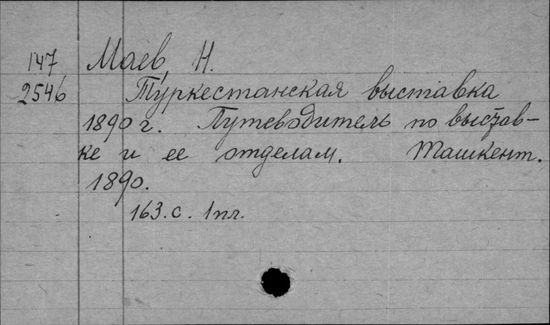 147 Маев Н.
2546 Туркестанская выставка
1890 г. Путеводитель по выстав-
ке и ее отделам. Ташкент.
1890.
163. с. 1 пл.